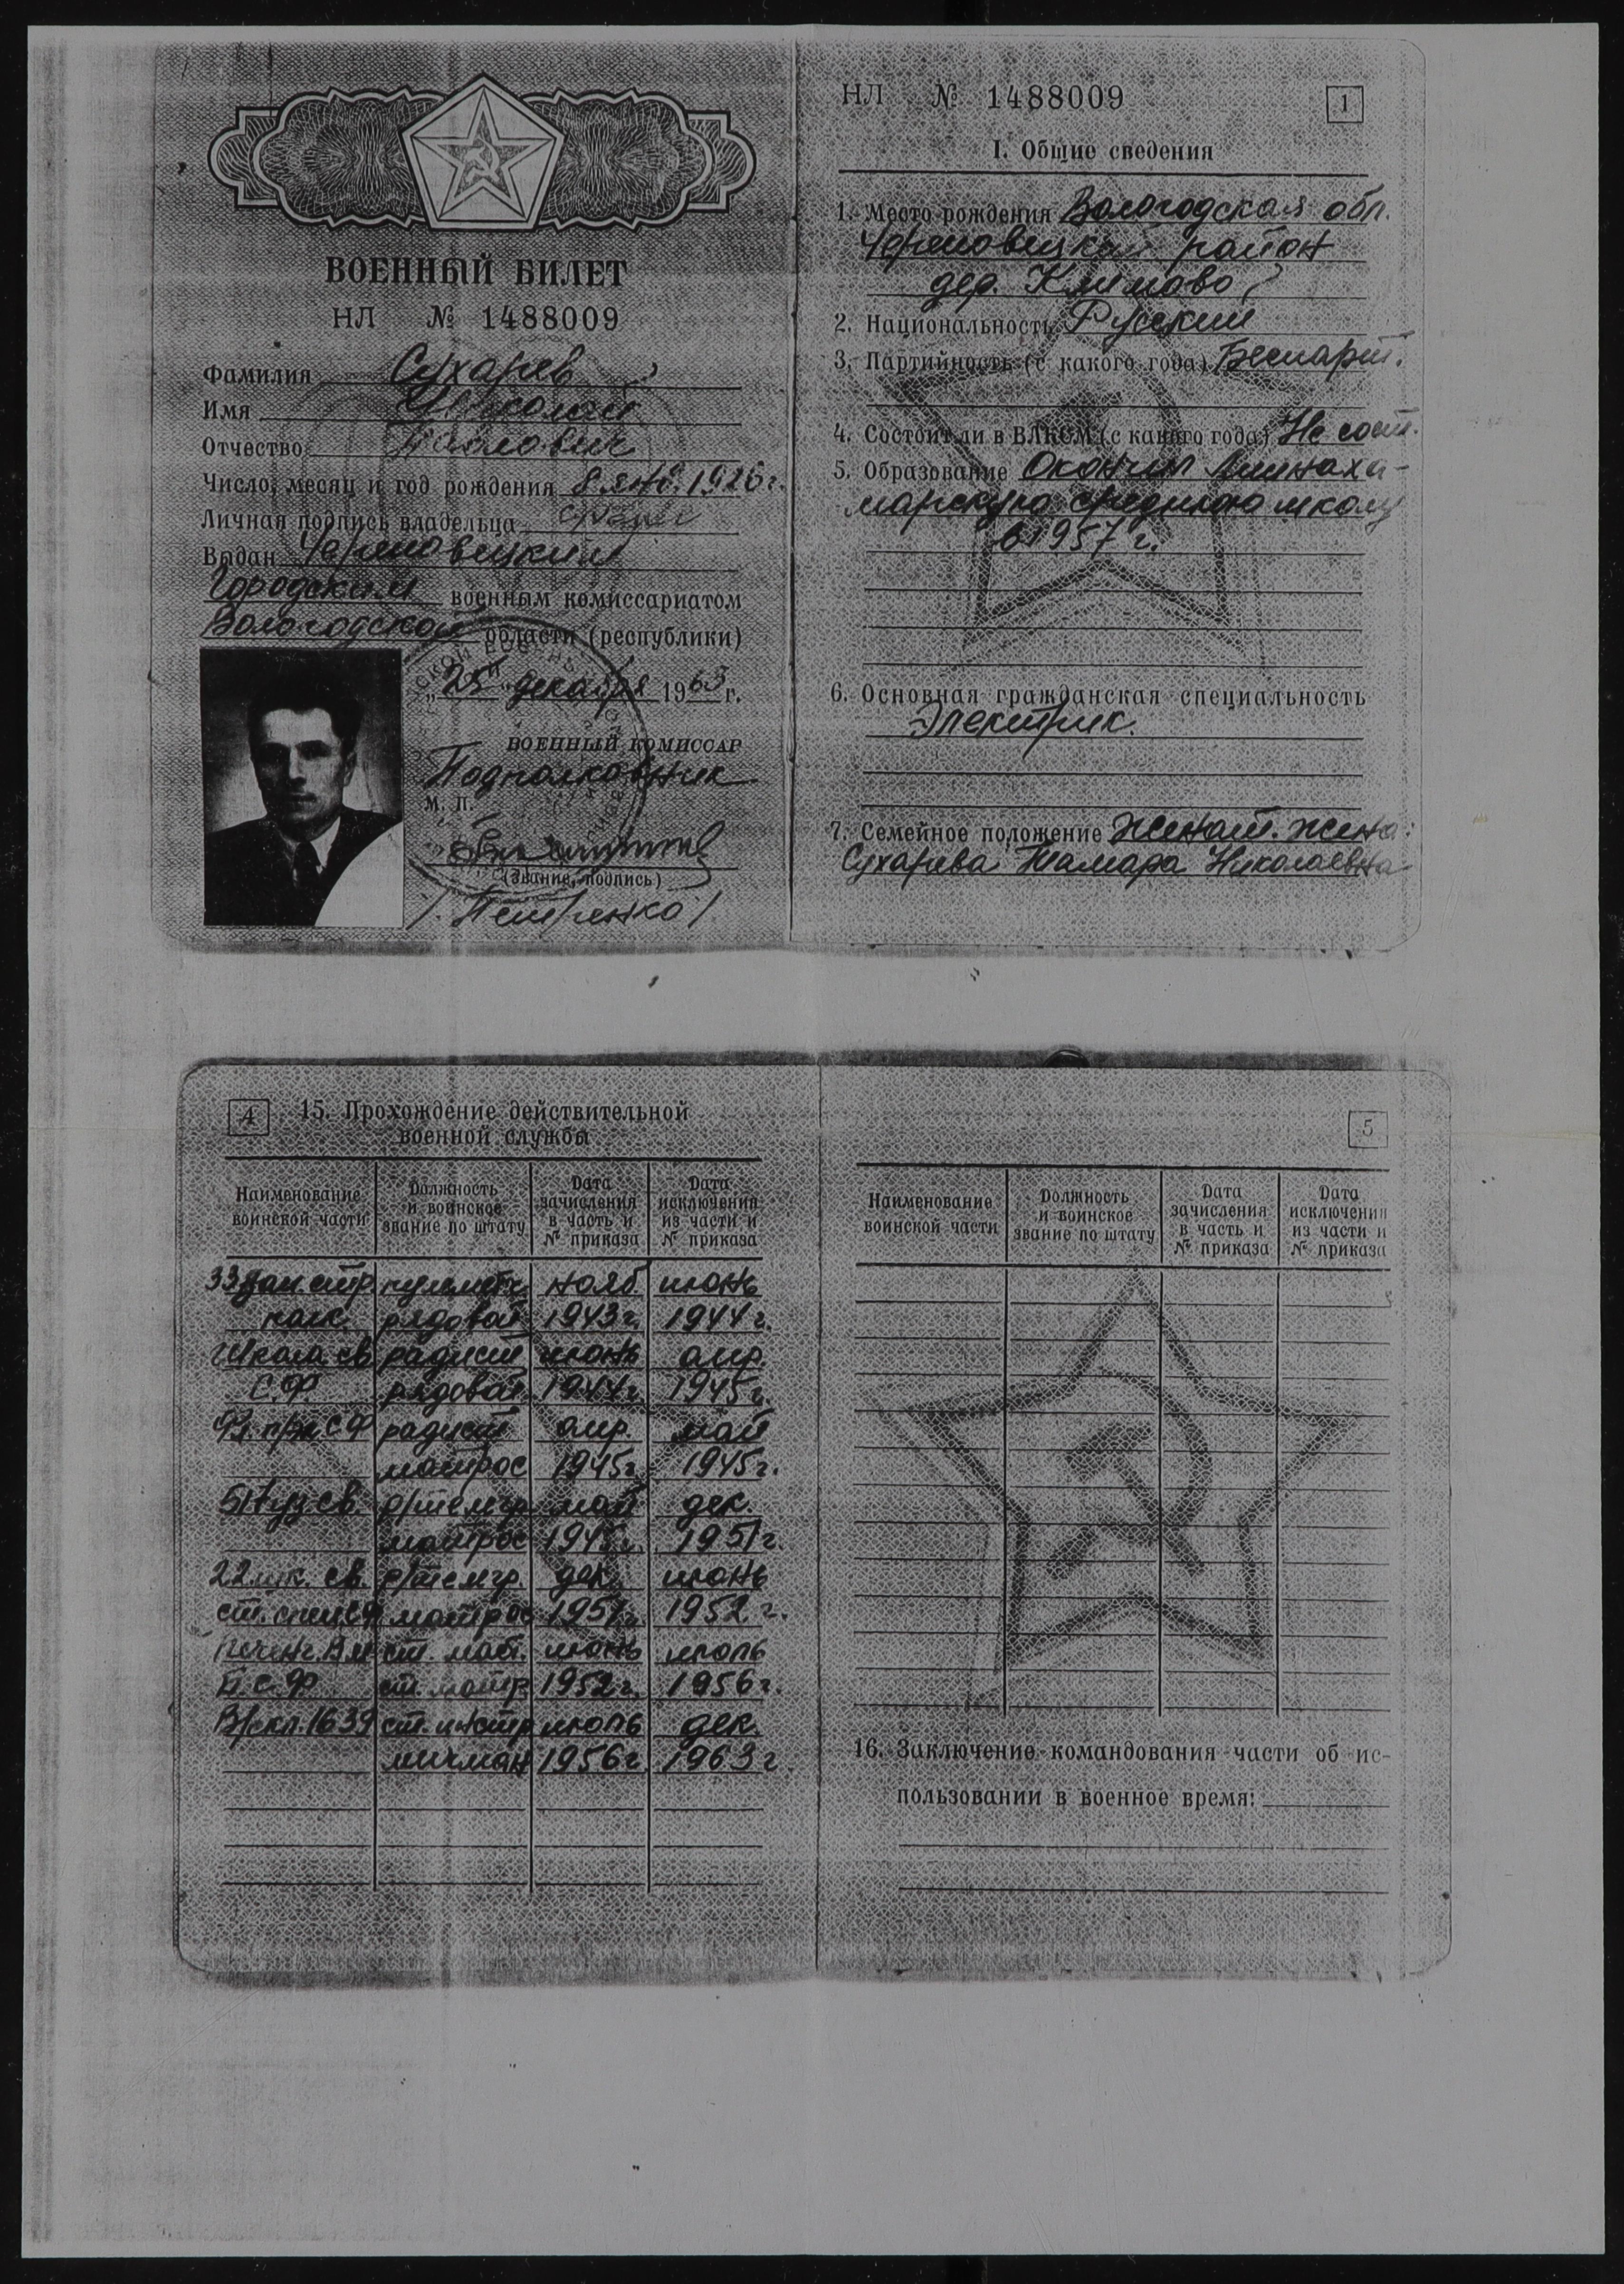 ВОЕННЫЙ БИЛЕТ
НЛ № 1488009
Фамилия Сухарев
Имя Николай
Отчество Павлович
Число, месяц и год рождения 8 янв. 1926 г.
Личная подпись владельца
Выдан Череповецким
Городским военным комиссариатом
Вологодской области (республики)
"25" декабря 1963 г.
ВОЕННЫЙ КОМИССАР
Подполковник
М. П.
(звание, подпись)
/Петренко/
НЛ № 1488009
1
I. Общие сведения
1. Место рождения Вологодская обл.
Череповецкий район
дер. Климово
2. Национальность Русский
3. Партийность (с какого года) Беспарт.
4. Состоит ли в ВЛКСМ (с какого года) Не сост.
5. Образование Окончил Линаха-
марскую среднюю школу
в 1957 г.
6. Основная гражданская специальность
Электрик.
7. Семейное положение Женат. Жена:
Сухарева Тамара Николаевна
4
15. Прохождение действительной
военной службы
Наименование воинской части
Должность и воинское звание по штату
Дата зачисления в часть и № приказа
Дата исключения из части и № приказа
33 зап. стр. пулеметч. нояб. июнь
полк. рядовой 1943 г. 1944 г.
Школа св. радист июнь апр.
С.Ф. рядовой 1944 г. 1945 г.
СФ радист апр. май
матрос 1945 г. 1945 г.
св. р/телегр. май дек.
матрос 1945 г. 1951 г.
св. р/телегр. дек. июнь
матрос 1951 г. 1952 г.
Печенг. В.М. ст. июнь июль
Б.С.Ф. ст. матр. 1952 г. 1956 г.
ст. инстр. июль дек.
мичман 1956 г. 1963 г.
5
Наименование воинской части
Должность и воинское звание по штату
Дата зачисления в часть и № приказа
Дата исключения из части и № приказа
16. Заключение командования части об ис-
пользовании в военное время: